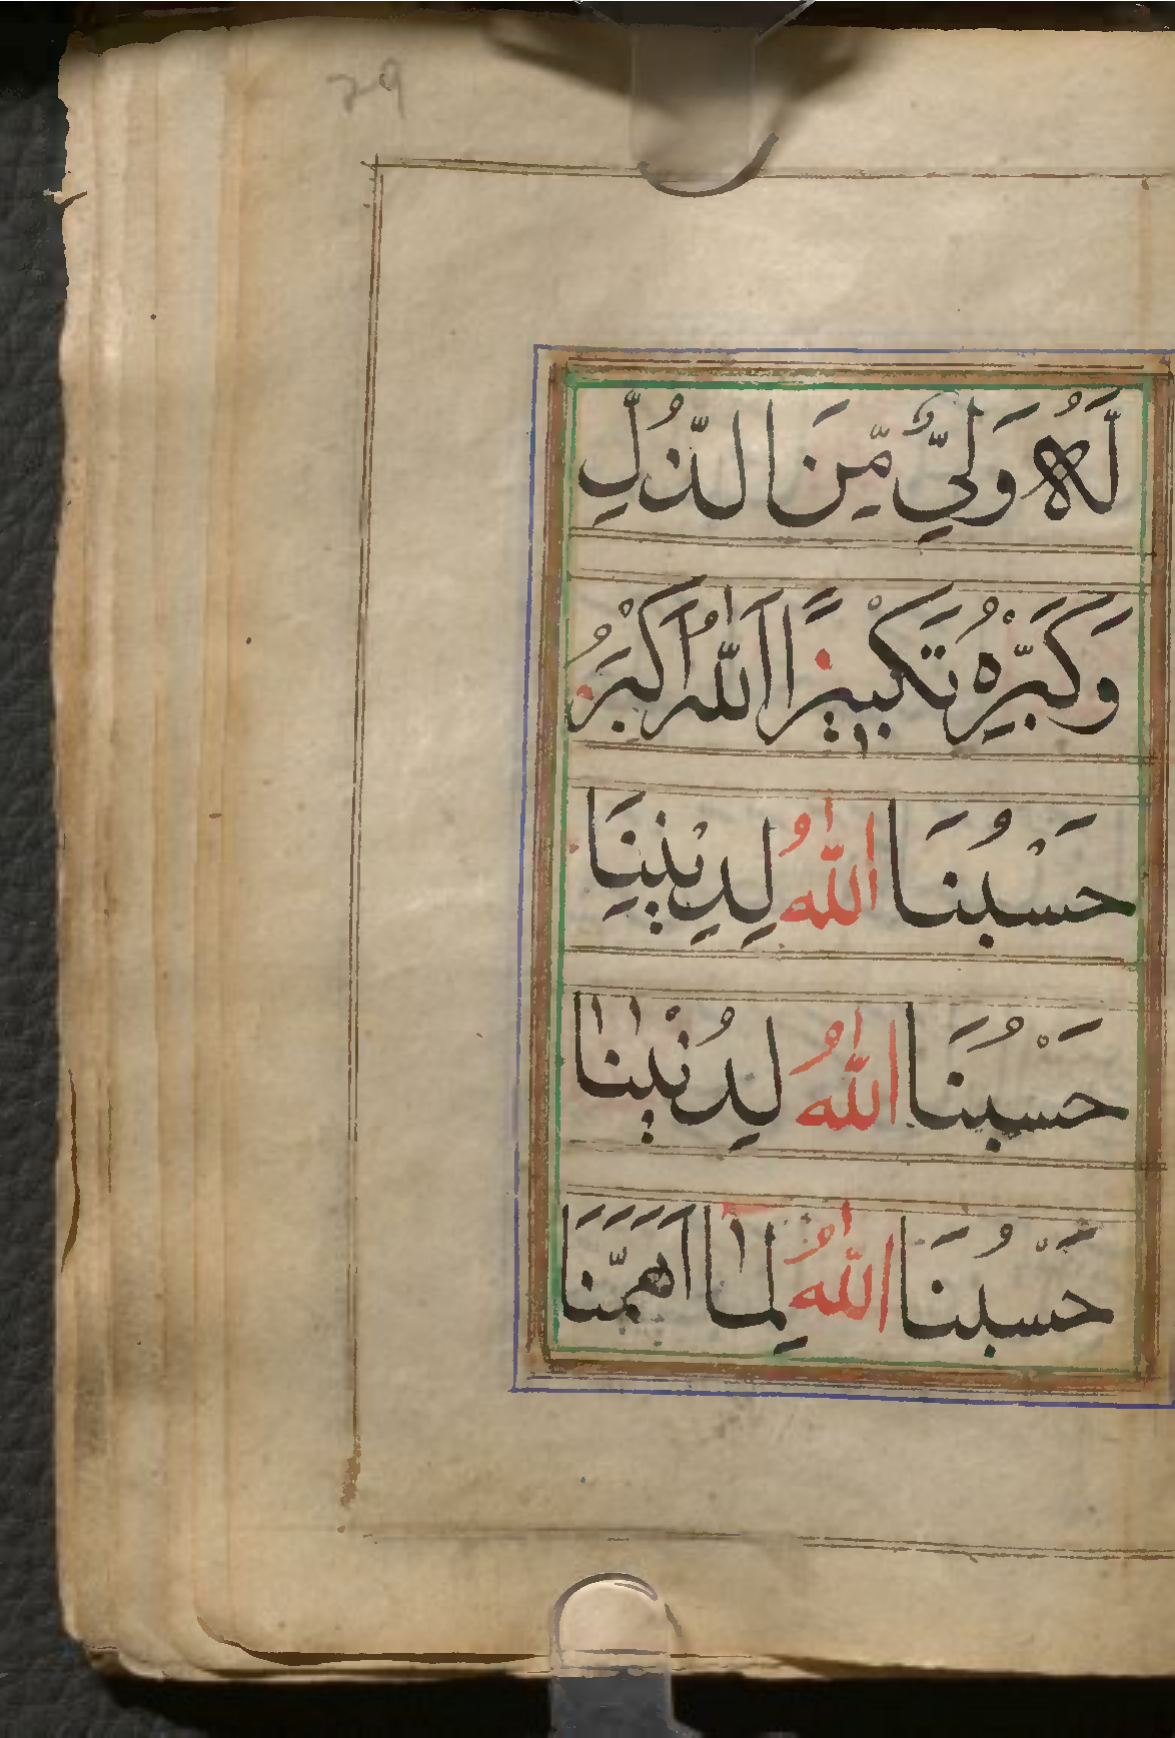 29
لَهُ وَلِيٌّ مِّنَ الذُّلِّ
وَكَبِّرْهُ تَكْبِيْرًا اَللّٰهُ اَكْبَرُ
حَسْبُنَا اللّٰهُ لِدِيْنِنَا
حَسْبُنَا اللّٰهُ لِدُنْيٰنٰا
حَسْبُنَا اللّٰهُ لِمٰا اَهَمَّنَا